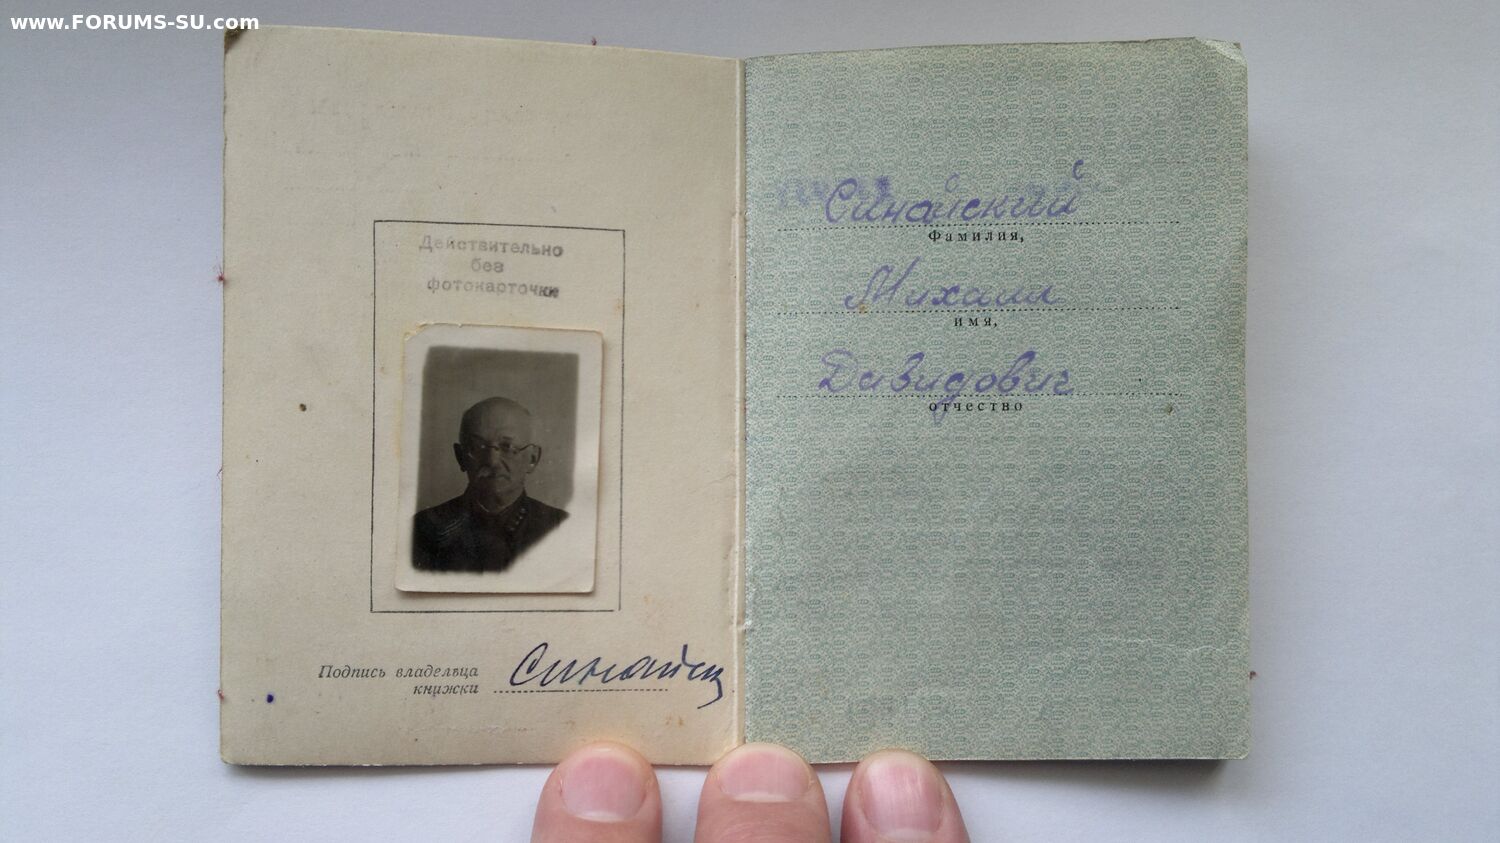 www.FORUMS-SU.com
Действительно
без
фотокарточки
Подпись владельца
книжки
Синайск
Синайский
Фамилия,
Михаил
имя,
Давидович
отчество